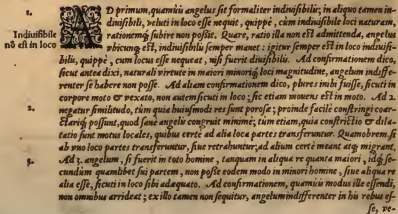 1.
AD primum, quamuis angelus sit formaliter indiuisibilis; in aliquo tamen in
diuisibili, veluti in loco esse nequit, quippè, cum indiuisibile loci naturam,
Indiuisibile
nō est in loco
rationemq; subire non possit. Quare, ratio illa non est admittenda, angelus
vbicunq; est, indiuisibilis semper manet: igitur semper est in loco indiuisi-
bili, quippè, cum locus esse nequeat, nisi fuerit diuisibilis. Ad confirmationem dico,
sicut antea dixi, naturali virtute in maiori minoriq; loci magnitudine, angelum indiffe-
renter se habere non posse. Ad aliam confirmationem dico, plures imbi fuisse, sicuti in
corpore moto & vexato, non autem sicuti in loco; sic etiam moueri est in moto. Ad 2.
2.
negatur similitudo, tùm quia huiusmodi res sunt porosæ; proinde facilè constringi coar-
ctariq; possunt, quod sanè angelo congruit minimè; tùm etiam, quia constrictio & dila-
tatio sunt motus locales, quibus certè ad alia loca partes transferuntur. Quamobrem, si
ab vno loco partes transferuntur, siue retrahuntur; ad alium certè meant atq; migrant.
3.
Ad 3. angelum, si fuerit in toto homine, tanquam in aliqua re quanta maiori, idq; se-
cundum quamlibet sui partem, non posse eodem modo in minori homine, siue aliqua re
alia esse, sicuti in loco sibi adæquato. Ad confirmationem, quamuis modus ille essendi,
non omnibus arrideat; ex illo tamen non sequitur, angelum indifferenter in his rebus es-
se, ve-